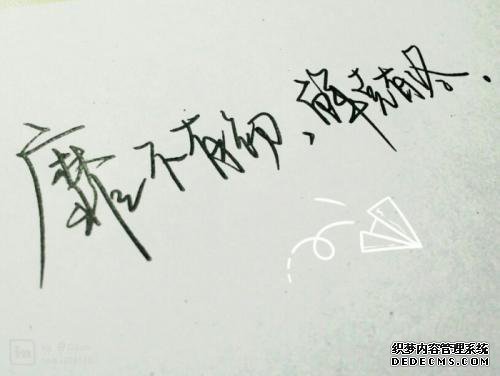 靡不有初、鲜克有终.
织梦内容管理系统
DEDECMS.COM
in